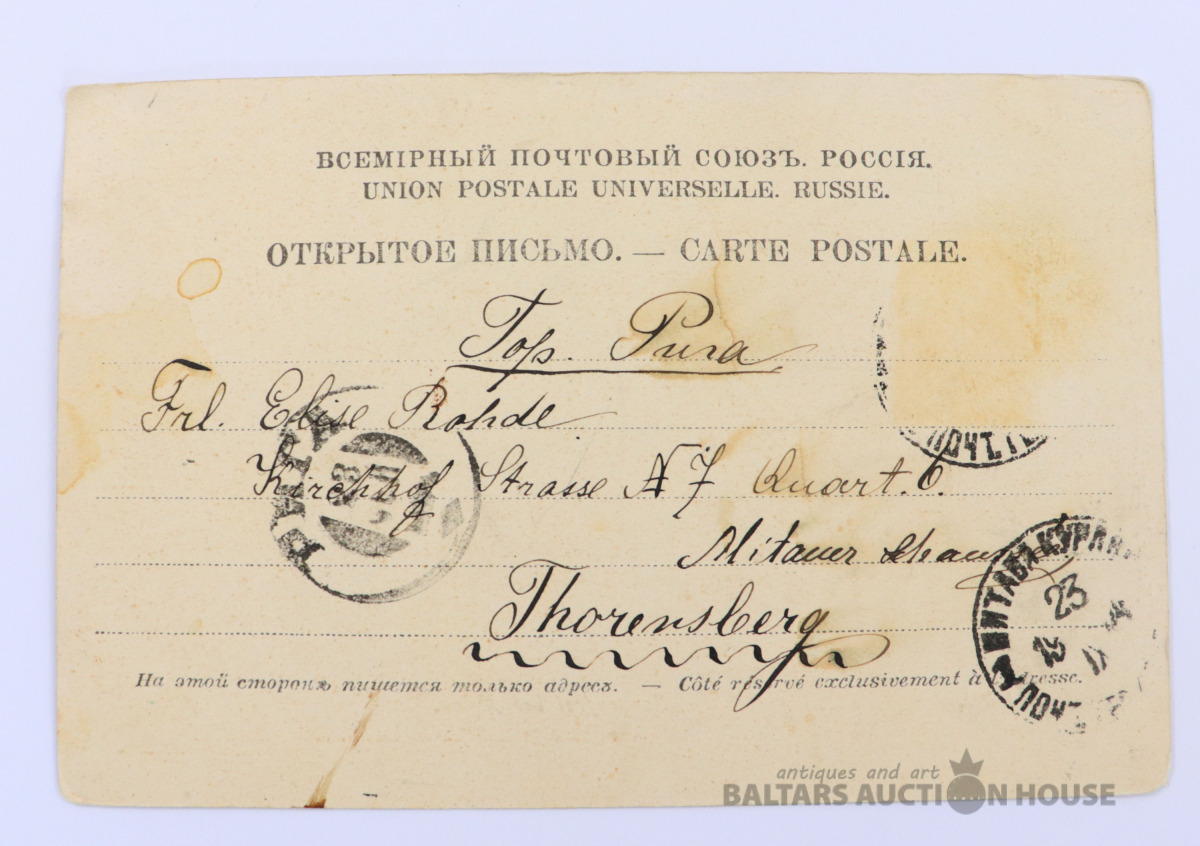 ВСЕМІРНЫЙ ПОЧТОВЫЙ СОЮЗЪ. РОССІЯ.
UNION POSTALE UNIVERSELLE. RUSSIE.
ОТКРЫТОЕ ПИСЬМО. — CARTE POSTALE.
Гор. Рига
Frl. Elise Rohde
Kirchhof Strasse N 7 Quart. 6.
Mitauer
Thorensberg
На этой сторонѣ пишется только адресъ. — Côté réservé exclusivement à l'adresse.
РИГА
ПОЧТ.
МИТАВА КУРЛ
23
antiques and art
BALTARS AUCTION HOUSE